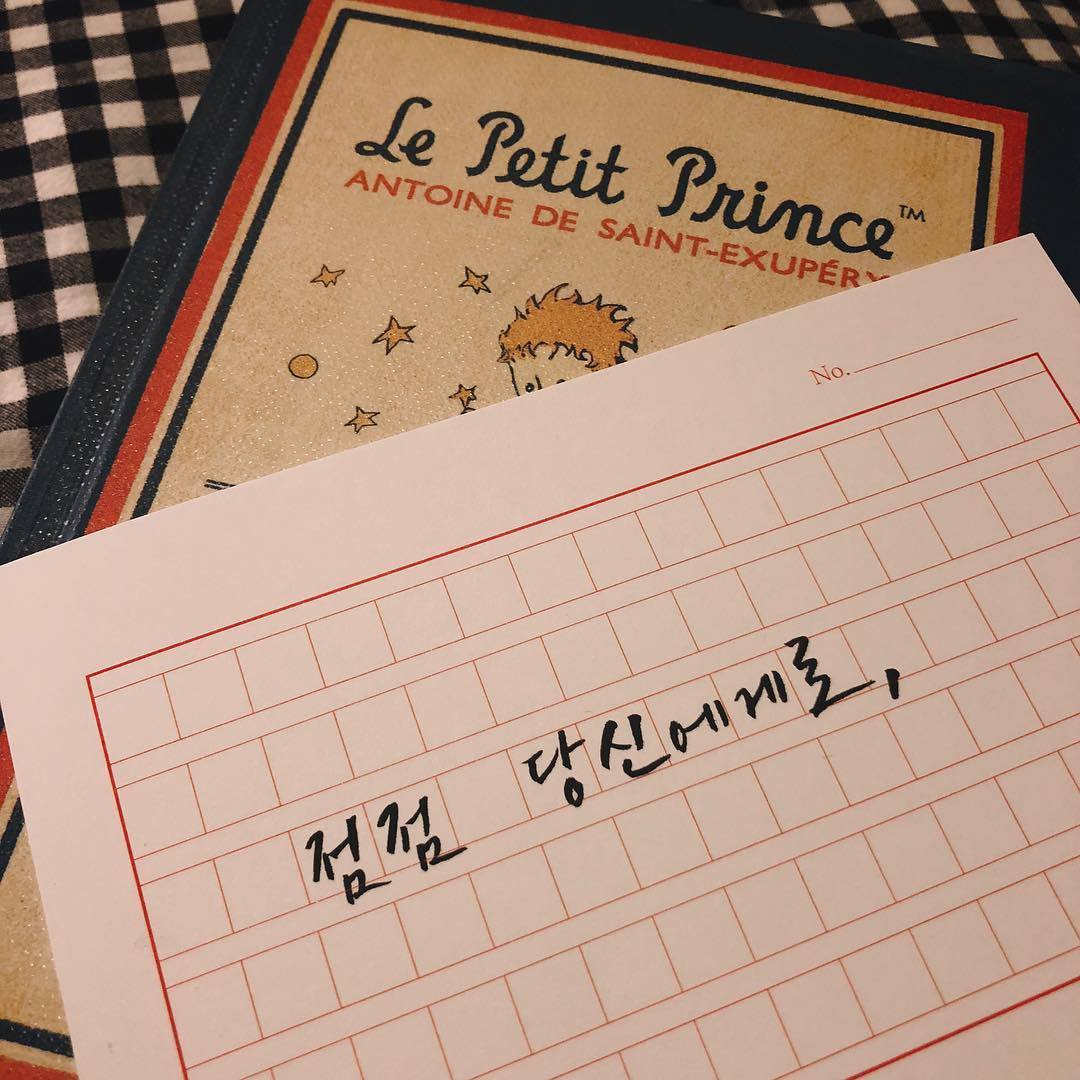 Le Petit Prince™
ANTOINE DE SAINT-EXUPÉRY
No.
점점 당신에게로,